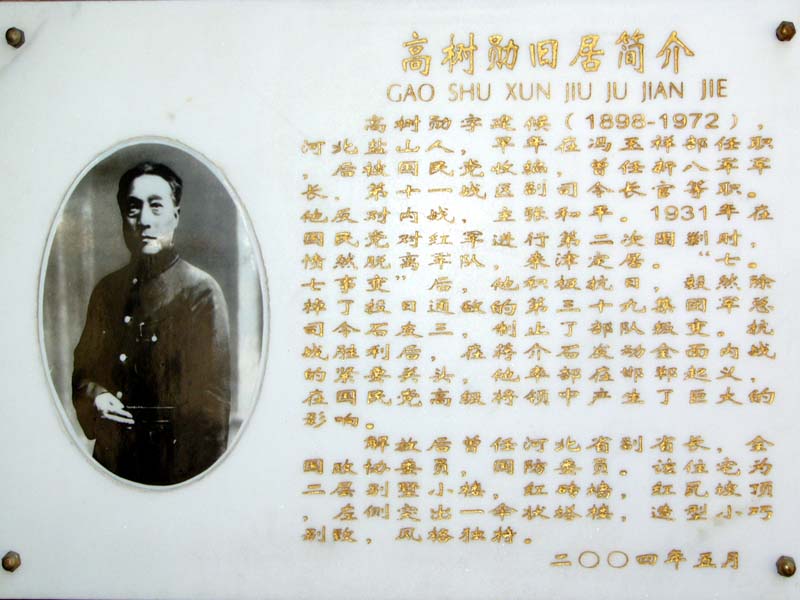 高树勋旧居简介
GAO SHU XUN JIU JU JIAN JIE
高树勋字建侯（1898-1972），
河北盐山人，早年在冯玉祥部任职
，后被国民党收编，曾任新八军军
长，第十一战区副司令长官等职。
他反对内战，主张和平。1931年在
国民党对红军进行第二次围剿时，
愤然脱离军队，来津定居。“七。
七事变”后，他积极抗日，毅然除
掉了投日通敌的第三十九集团军总
司令石友三，制止了部队叛变。抗
战胜利后，在蒋介石发动全面内战
的紧要关头，他率部在邯郸起义，
在国民党高级将领中产生了巨大的
影响。
解放后曾任河北省副省长，全
国政协委员，国防委员。该住宅为
二层别墅小楼，红砖墙，红瓦坡顶
，左侧突出一伞状塔楼，造型小巧
别致，风格独特。
二〇〇四年五月